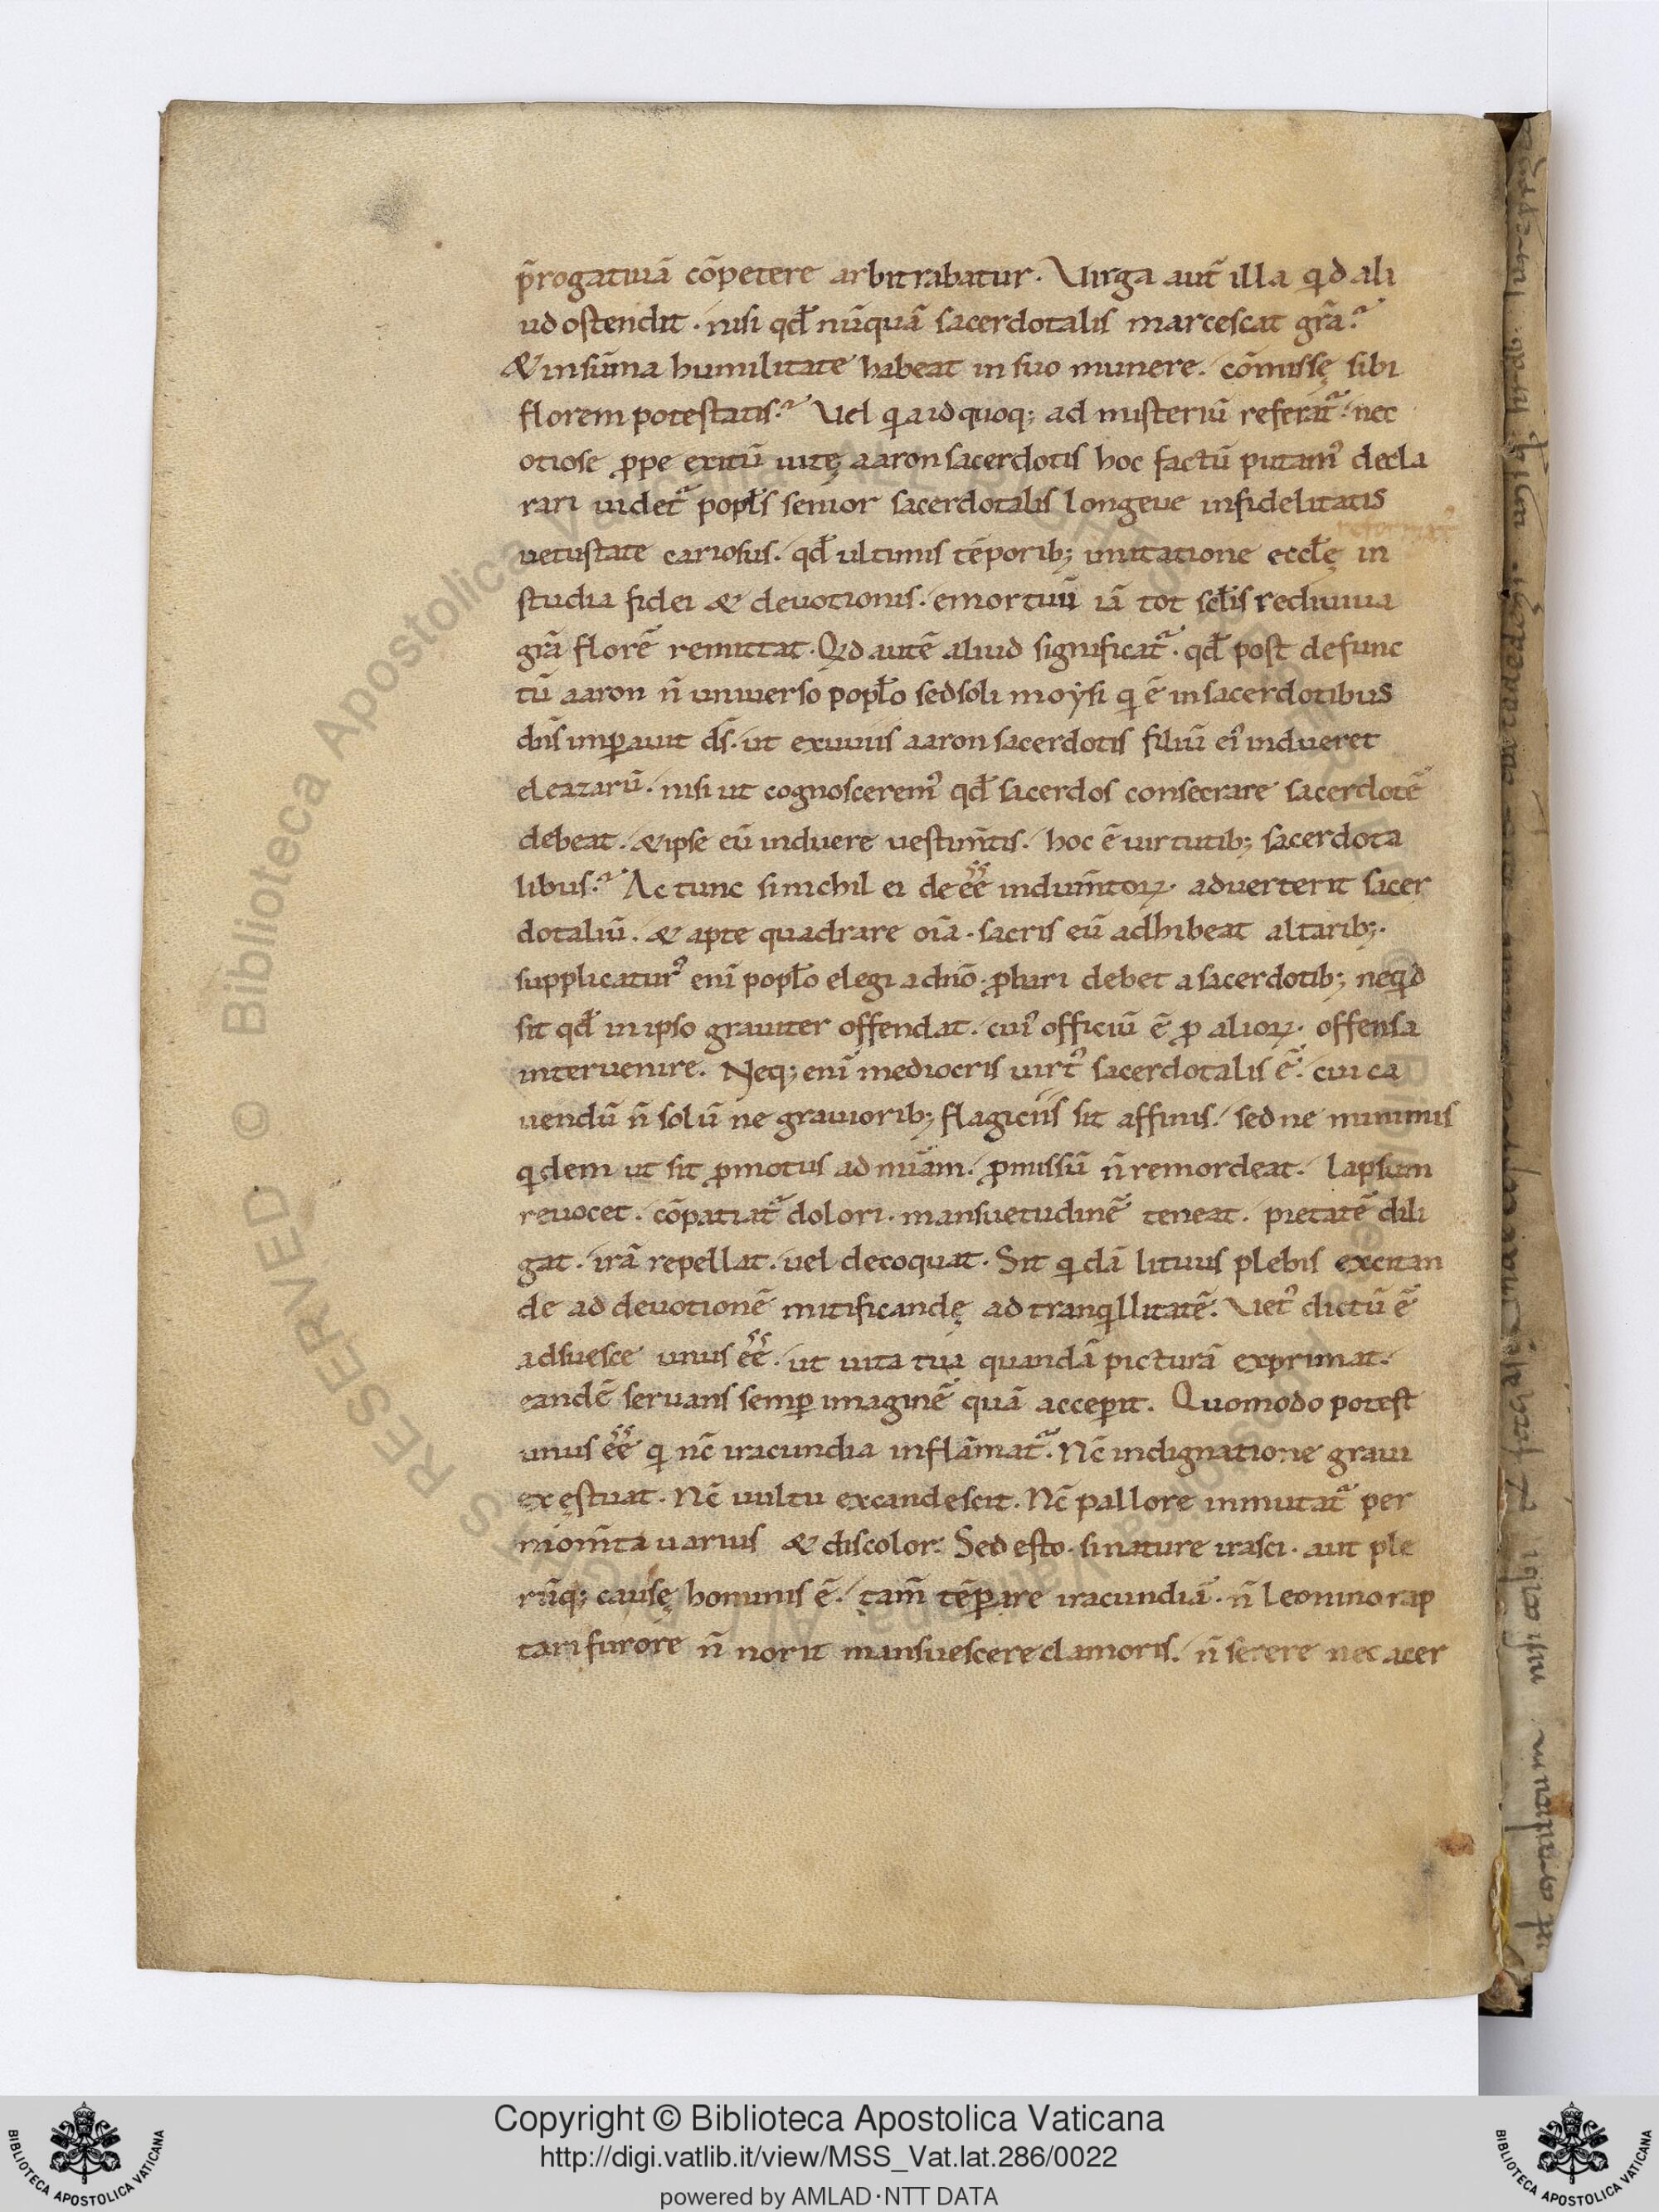 p̄rogatiuā cōpetere arbitrabatur. Virga aut̄ illa qid ali
ud ostendit. nisi qd̄ nūquā sacerdotalis marcescat gr̄a.
& in sūma humilitate habeat in suo munere. cōmissę sibi
florem potestatis. Vel qia id quoq; ad misteriū referat᷑. nec
otiose ꝓpe exitū uitę aaron sacerdotis hoc factū putam᷒ decla
rari uidet᷑ popl̄s senior sacerdotalis longeue infidelitatis
reformat᷒
uetustate cariosus. qd̄ ultimis tēporib; imitatione eccl̄ę in
studia fidei & deuotionis. emortuū iā tot scl̄is rediuiua
gr̄a florē remittat. Qid autē aliud significat᷑. qd̄ post defunc
tū aaron n̄ uniuerso popl̄o sed soli moẏsi qi ē in sacerdotibus
dn̄s imꝑauit ds̄. ut exuuiis aaron sacerdotis filiū ei᷒ indueret
eleazarū. nisi ut cognoscerem᷒ qd̄ sacerdos consecrare sacerdotē
debeat. & ipse eū induere uestim̄tis. hoc ē uirtutib; sacerdota
libus. Ac tunc si nichil ei deēē indum̄toꝝ. aduerterit sacer
dotaliū. & apte quadrare oīa. sacris eū adhibeat altarib;.
supplicatur᷒ enī popl̄o elegi a dn̄o. ꝓbari debet a sacerdotib; neqid
sit qd̄ in ipso grauiter offendat. cui᷒ officiū ē ꝓ alioꝝ. offensa
interuenire. Neq; enī mediocris uirt᷒ sacerdotalis ē. cui ca
uendū n̄ solū ne grauiorib; flagiciis sit affinis. sed ne minimis
qidem ut sit ꝓmotus ad mīam. ꝓmissū n̄ remordeat. lapsum
reuocet. cōpatiat᷑ dolori. mansuetudinē teneat. pietatē dili
gat. irā repellat. uel decoquat. Sit qidā lituus plebis excitan
de ad deuotionē mitificandę ad tranqillitatē. Vet᷒ dictū ē
adsuesce unus ēē. ut uita tua quandā picturā exprimat.
eandē seruans semꝑ imaginē quā acceꝑit. Quomodo potest
unus ēē qi nc̄ iracundia inflāmat᷑. Nc̄ indignatione graui
exęstuat. Nc̄ uultu excandescit. Nc̄ pallore inmutat᷑ per
mom̄ta uarius & discolor. Sed esto. si nature irasci. aut ple
rūq; causę hominis ē. tam̄ tēꝑare iracundiā. n̄ leonino rap
tari furore n̄ norit mansuescere clamoris. n̄ serere nec acer
Copyright © Biblioteca Apostolica Vaticana
http://digi.vatlib.it/view/MSS_Vat.lat.286/0022
powered by AMLAD·NTT DATA
BIBLIOTECA APOSTOLICA VATICANA
BIBLIOTECA APOSTOLICA VATICANA